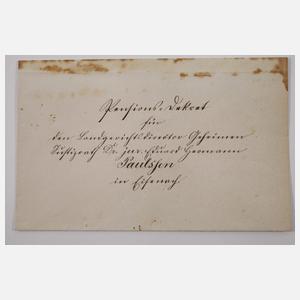 Pensions-Dekret
für
den Landgerichtsdirektor Geheimen
Justizrath Dr. jur. Eduard Hermann
Paulssen
in Eisenach.